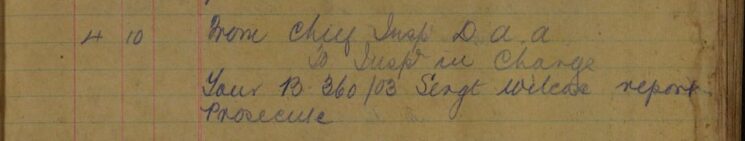 4 10 From Chief Insp D. a. a
To Insp in Charge
Your B 360/03 Sergt Wilcox report
Prosecute